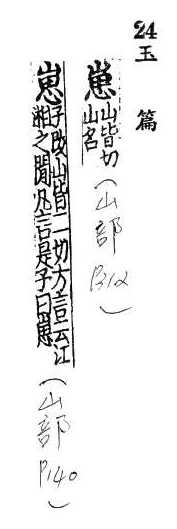 24
玉篇
崽山皆切
山名（山部P312）
崽子改山皆二切方言云江
湘之閒凡言是子曰崽（山部P140）